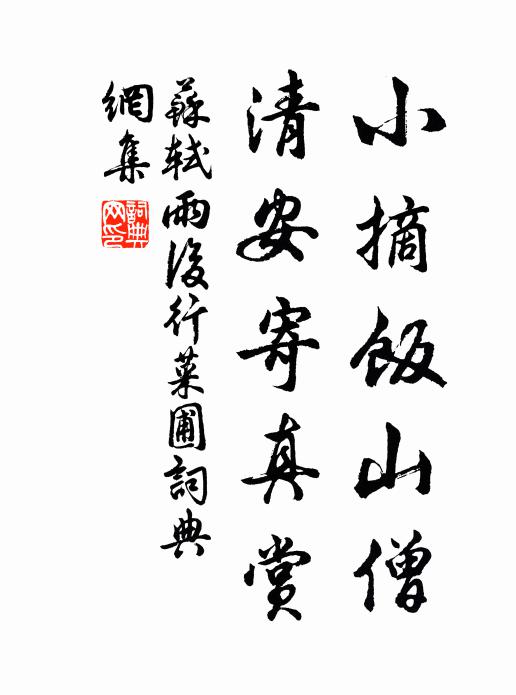 小摘飯山僧
清安寄真賞
蘇軾雨後行菜圃詞典
網集
詞典
网印